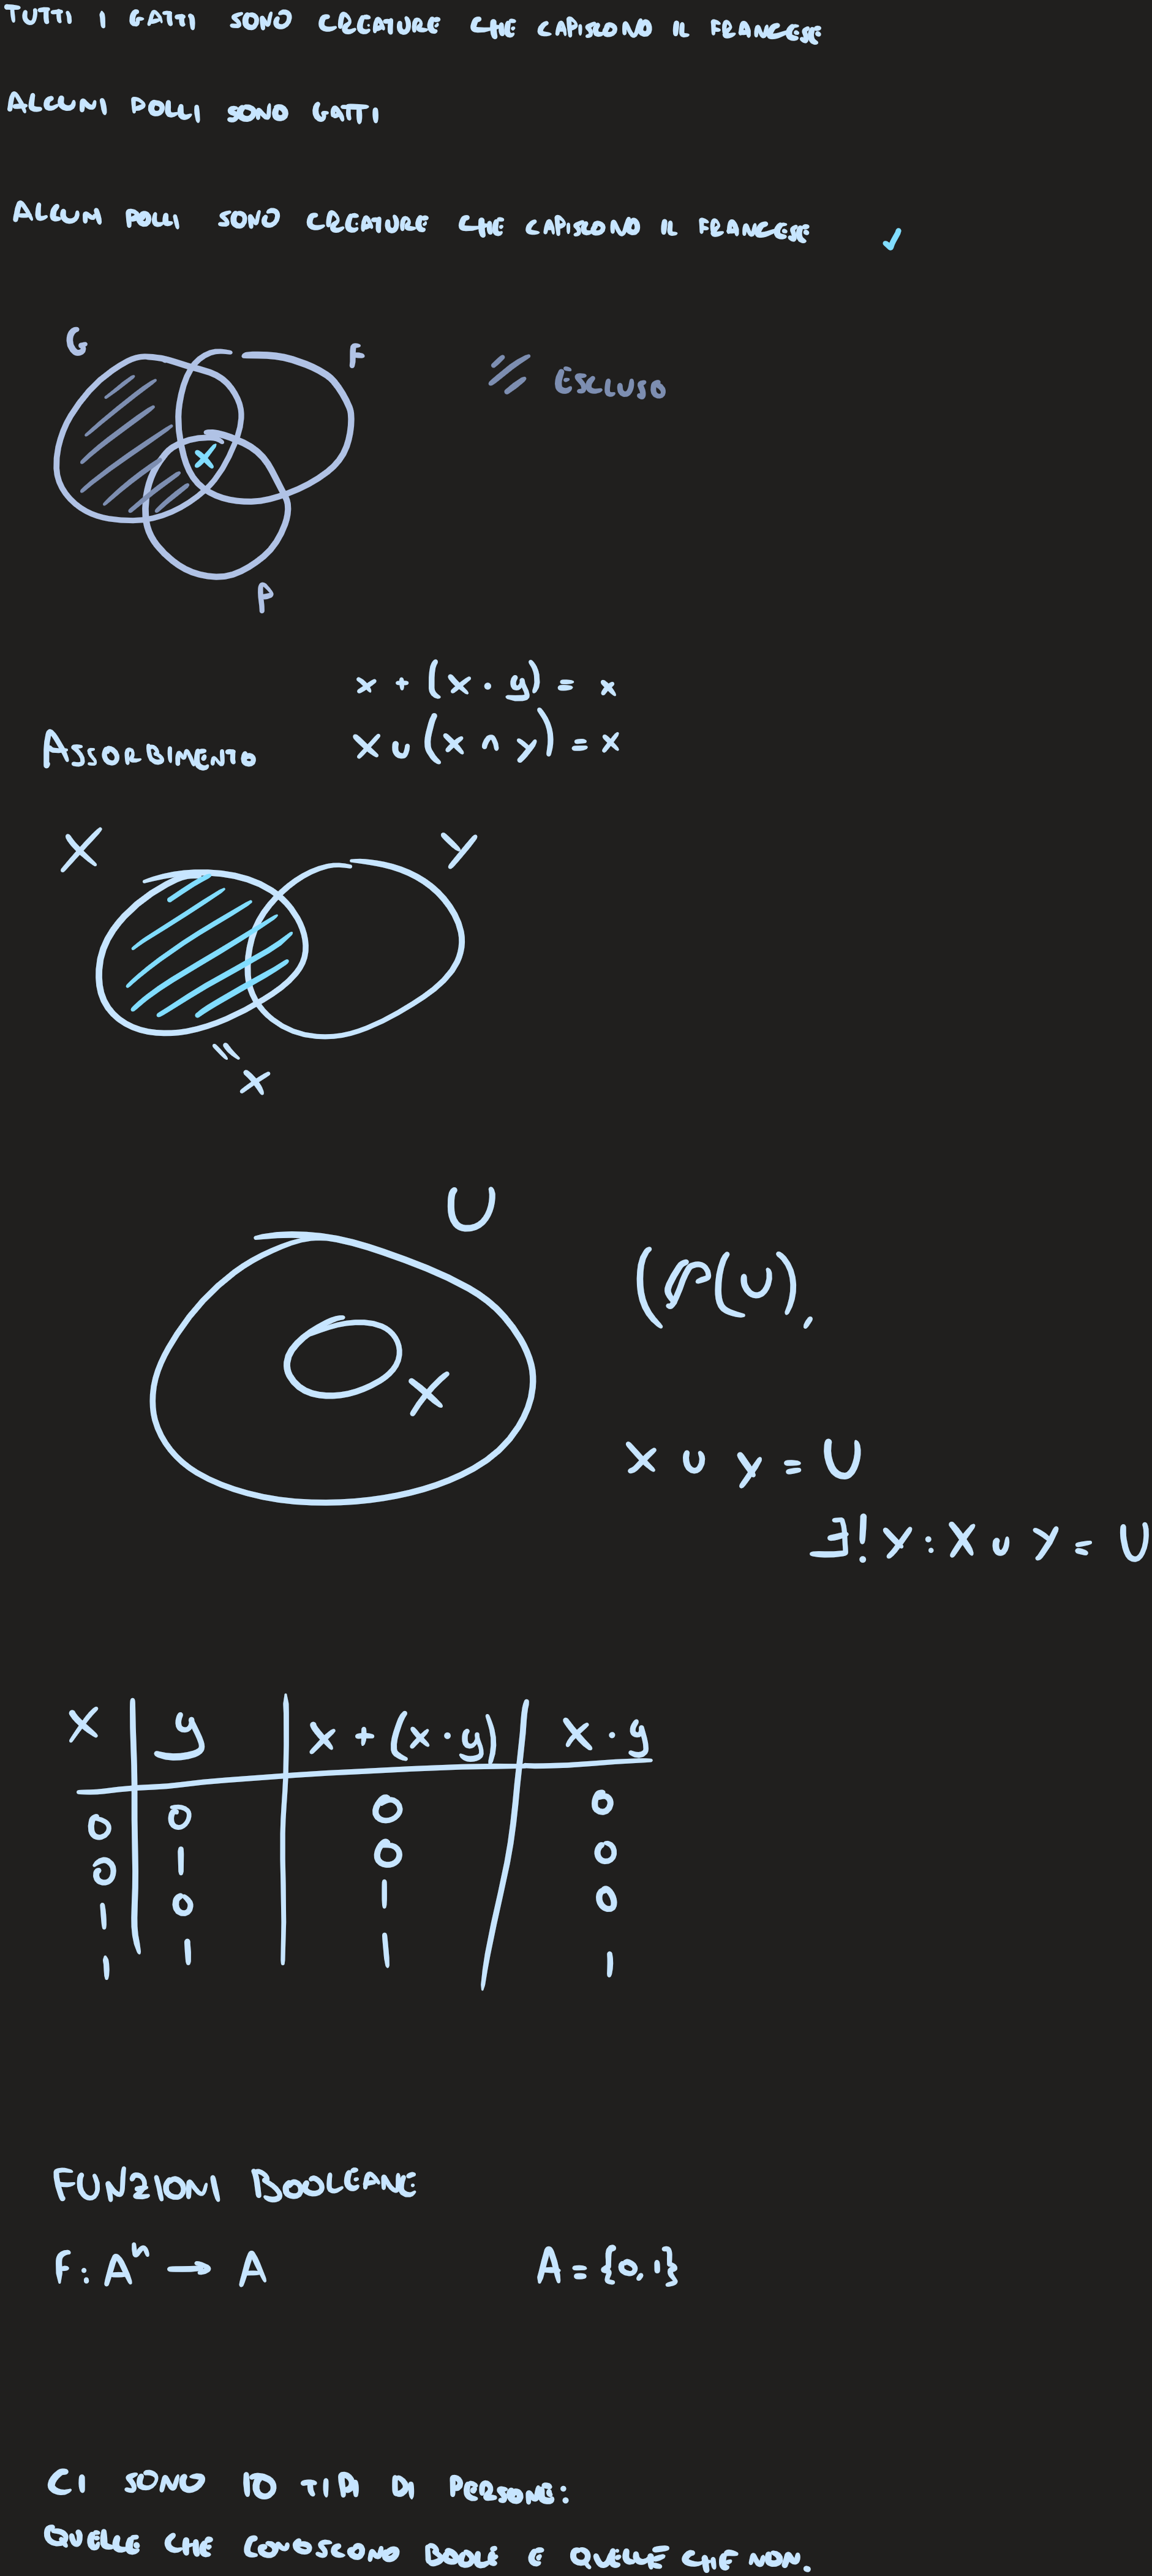 TUTTI I GATTI SONO CREATURE CHE CAPISCONO IL FRANCESE
ALCUNI POLLI SONO GATTI
ALCUNI POLLI SONO CREATURE CHE CAPISCONO IL FRANCESE ✓
G
F
// ESCLUSO
X
P
x + (x · y) = x
ASSORBIMENTO X ∪ (X ∩ Y) = X
X Y
= X
U
(℘(U),
X
X ∪ Y = U
∃! Y : X ∪ Y = U
X y X + (x · y) X · y
0 0 0 0
0 1 0 0
1 0 1 0
1 1 1 1
FUNZIONI BOOLEANE
F : Aⁿ → A A = {0,1}
CI SONO 10 TIPI DI PERSONE:
QUELLE CHE CONOSCONO BOOLE E QUELLE CHE NON.